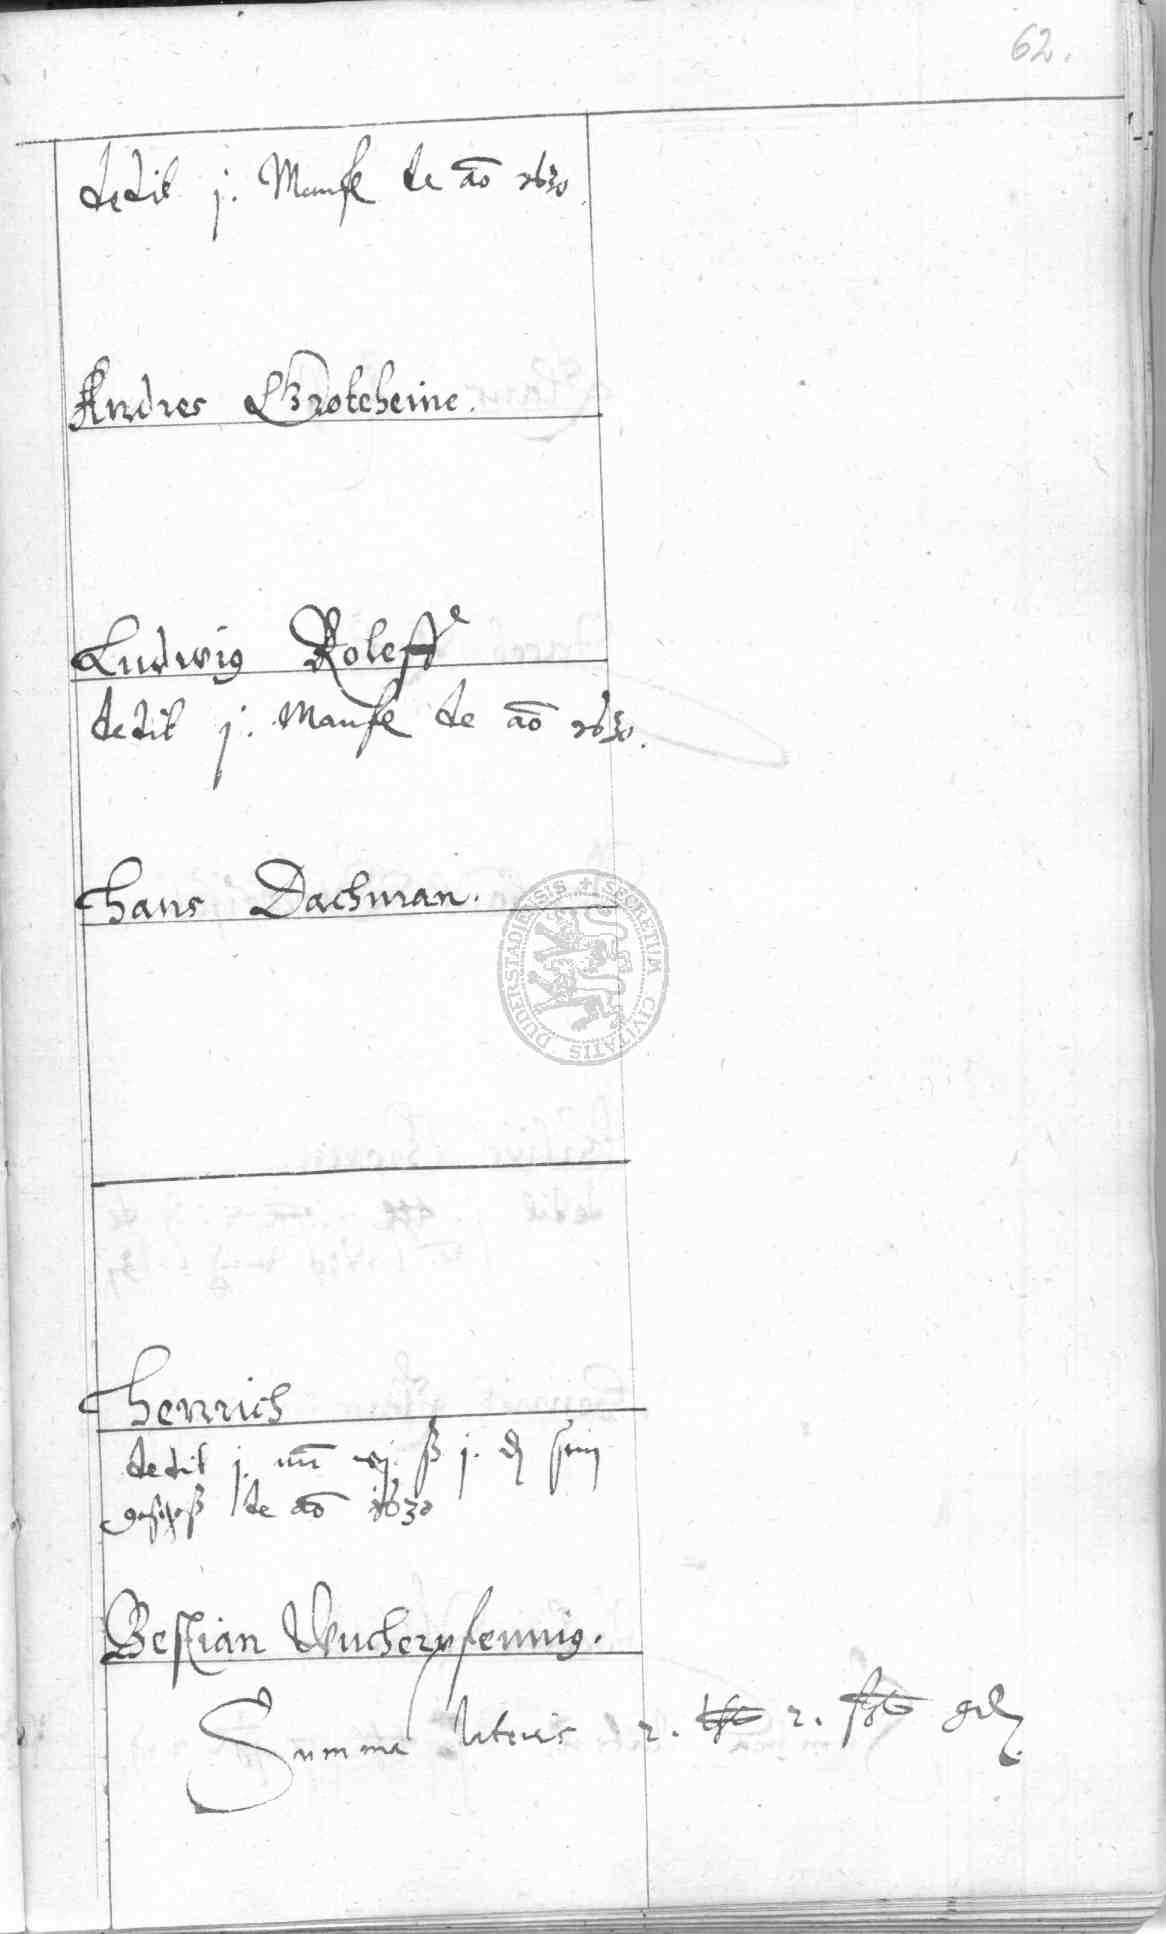 62.
dedit j. Mark de ao 1630.
Andres Grotcheine.
Ludwig Roleffe
dedit j. Mark de ao 1630.
Hans Dachman.
SECRETUM CIVITATIS DUDERSTADIENSIS
Henrich
dedit j. ß j. sein
geschoß de ao 1630
Bestian Wucherpfennig.
Summa lateris 2. 2.